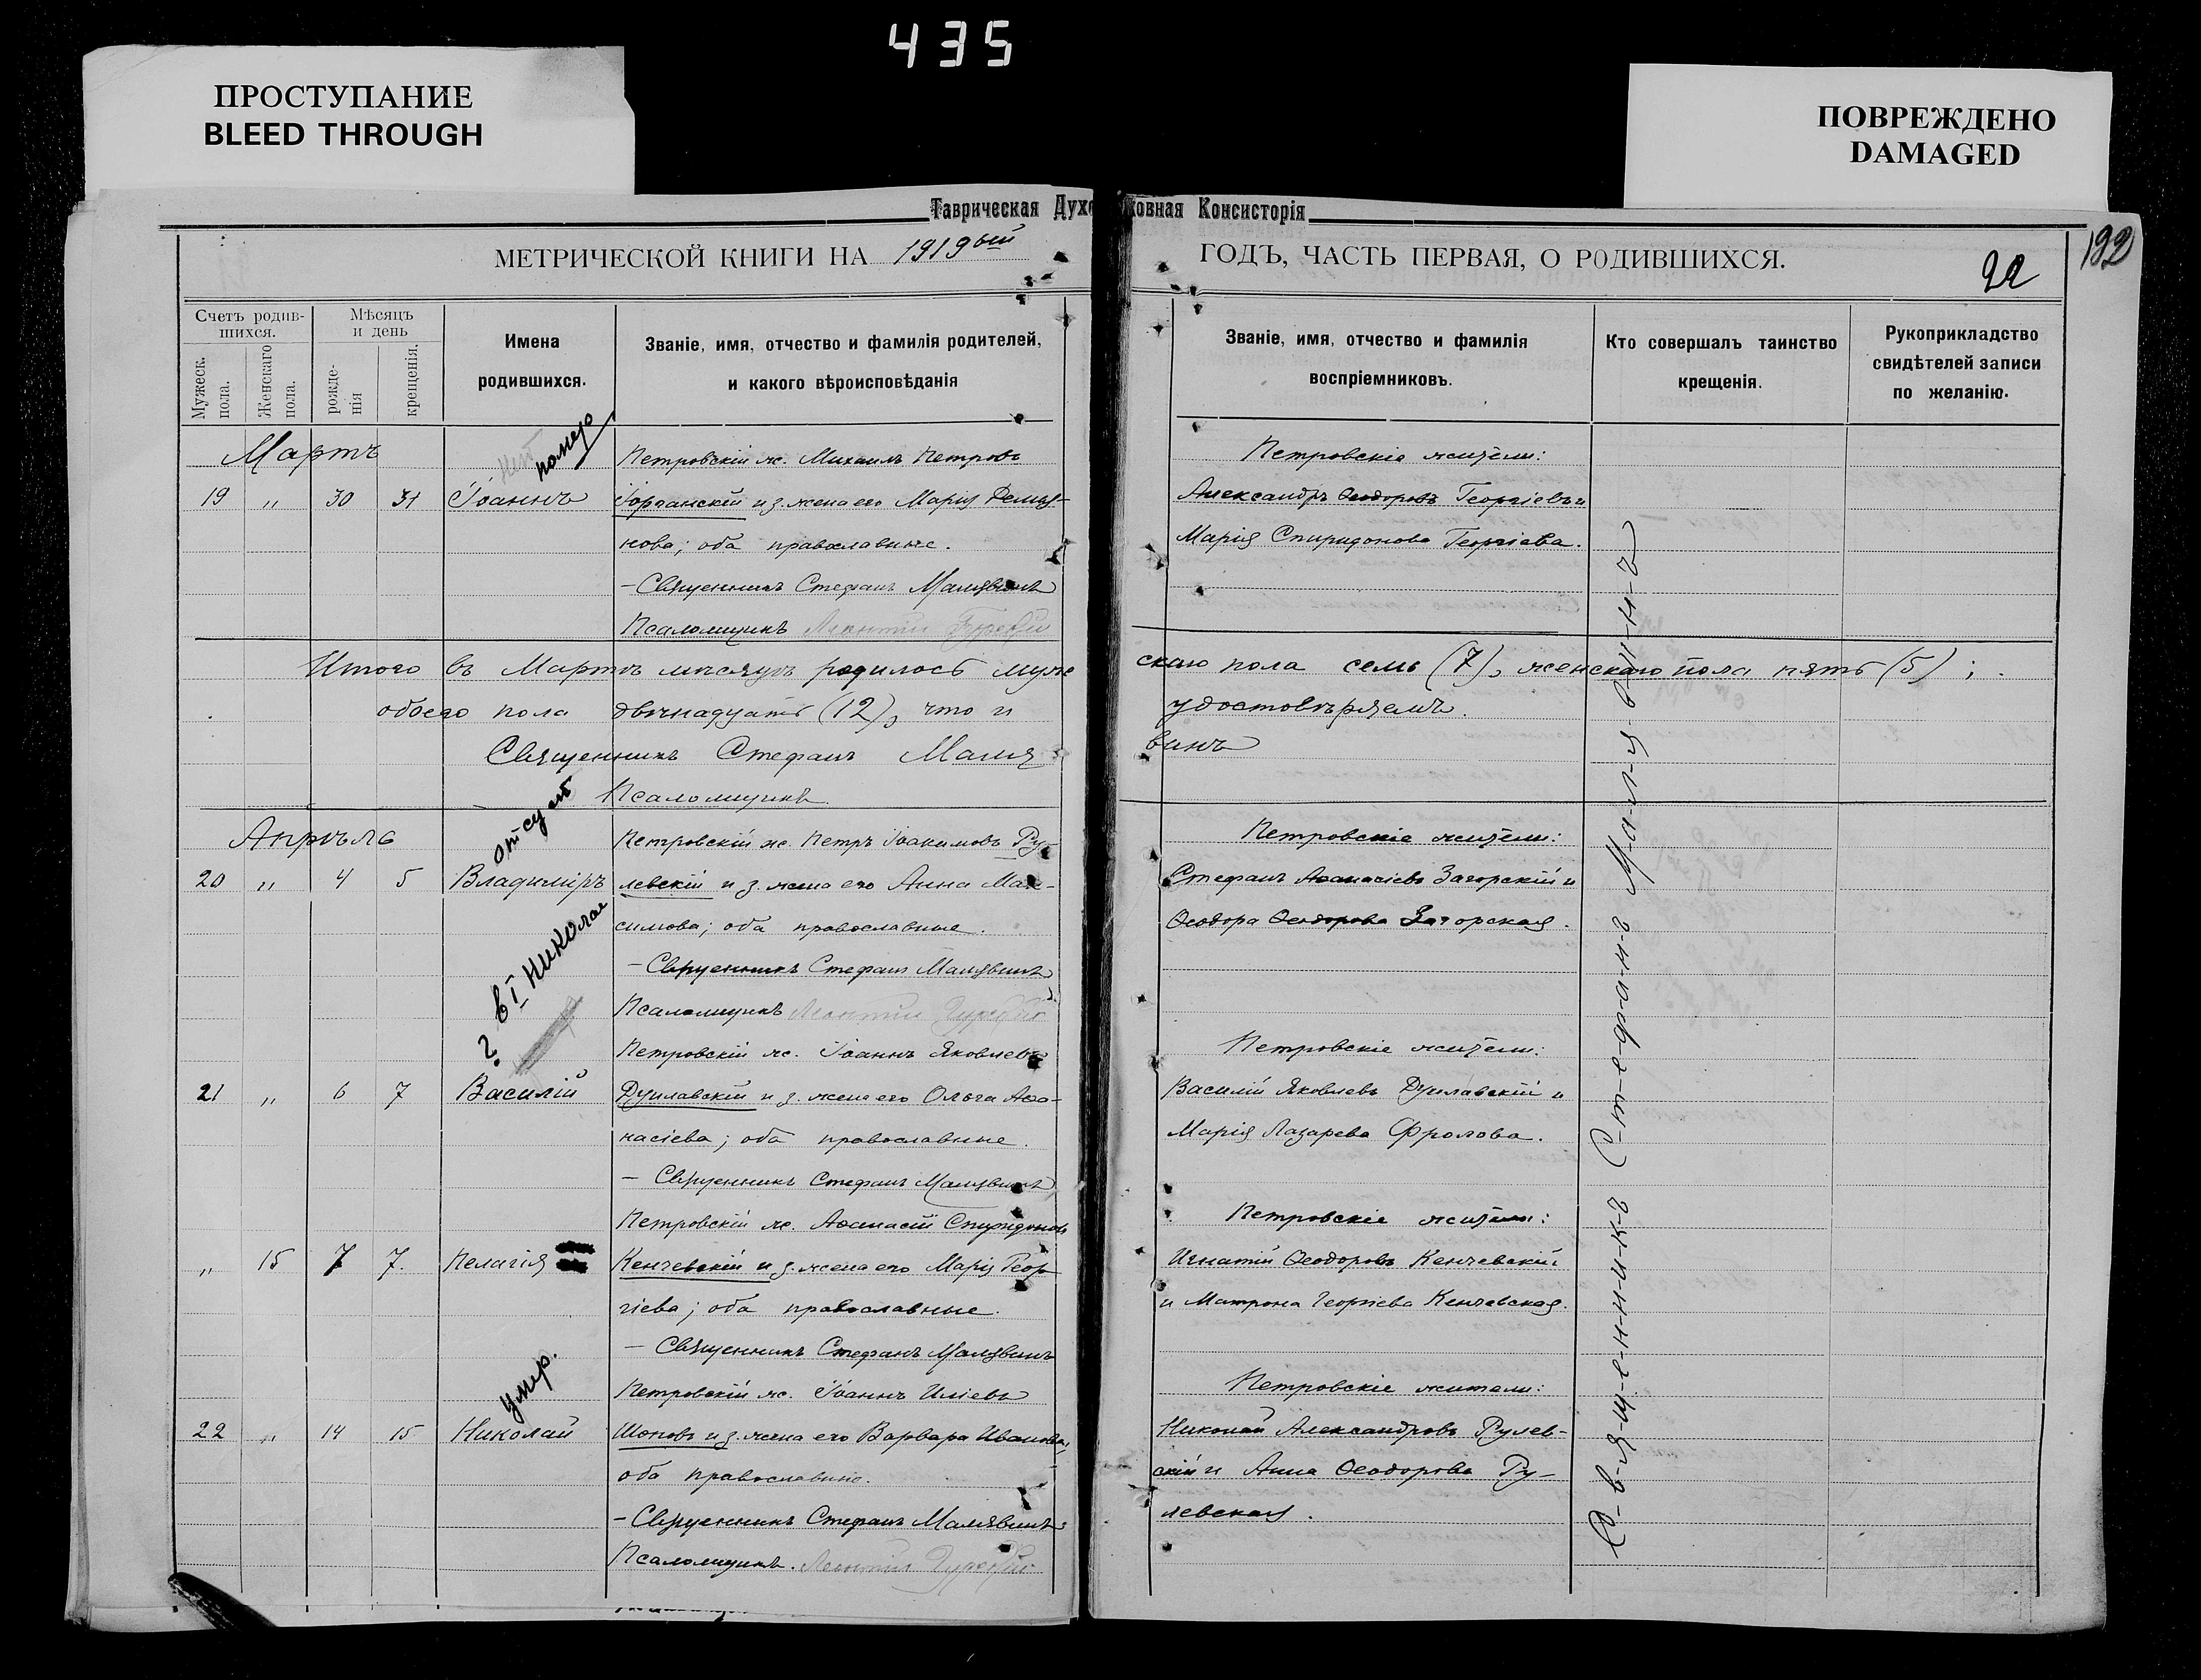 435
ПРОСТУПАНИЕ
BLEED THROUGH
ПОВРЕЖДЕНО
DAMAGED
Таврическая Духовная Консисторія
МЕТРИЧЕСКОЙ КНИГИ НА 1919ый
ГОДЪ, ЧАСТЬ ПЕРВАЯ, О РОДИВШИХСЯ.
22
192
Счетъ родив-
шихся.
Мѣсяцъ
и день
Мужеск.
пола.
Женскаго
пола.
рожде-
нія
крещенія.
Имена
родившихся.
Званіе, имя, отчество и фамилія родителей,
и какого вѣроисповѣданія
Мартъ
помер
Петровскій ж. Михаилъ Петровъ
19 " 30 31 Іоаннъ Іорданскій и з. жена его Марія Демья-
нова; оба православные.
– Священникъ Стефанъ Малявинъ
Псаломщикъ Леонтій
Итого въ Мартѣ мѣсяцѣ родилось муже
обоего пола двѣнадцать (12), что и
Священникъ Стефанъ Маля
Псаломщикъ
Апрѣль
отсут
Петровскій ж. Петръ Іоакимовъ Ру-
20 " 4 5 Владиміръ левскій и з. жена его Анна Мак-
симова; оба православные.
– Священникъ Стефанъ Малявинъ
Псаломщикъ Леонтій
? в I Николае
Петровскій ж. Іоаннъ Яковлевъ
21 " 6 7 Василій Дуплавскій и з. жена его Ольга Аѳа-
насіева; оба православные.
– Священникъ Стефанъ Малявинъ
Петровскій ж. Аѳанасій Спиридоновъ
" 15 7 7. Пелагія Кенчевскій и з. жена его Марія Геор-
гіева; оба православные.
– Священникъ Стефанъ Малявинъ
умер.
Петровскій ж. Іоаннъ Иліевъ
22 " 14 15 Николай Шоповъ и з. жена его Варвара Иванова,
оба православные.
– Священникъ Стефанъ Малявинъ
Псаломщикъ. Леонтій
Званіе, имя, отчество и фамилія
воспріемниковъ.
Кто совершалъ таинство
крещенія.
Рукоприкладство
свидѣтелей записи
по желанію.
Петровскіе жители:
Александръ Ѳеодоровъ Георгіевъ и
Марія Спиридонова Георгіева.
скаго пола семь (7), женскаго пола пять (5);
удостовѣряемъ.
винъ
Петровскіе жители:
Стефанъ Аѳанасіевъ Загорскій и
Ѳеодора Ѳеодорова Загорская.
Петровскіе жители:
Василій Яковлевъ Дуплавскій и
Марія Лазарева Фролова.
Петровскіе жители:
Игнатій Ѳеодоровъ Кенчевскій
и Матрона Георгіева Кенчевская.
Петровскіе жители:
Николай Александровъ Рулев-
скій и Анна Ѳеодорова Ру-
левская.
С-в-я-щ-е-н-н-и-к-ъ С-т-е-ф-а-н-ъ М-а-л-я-в-и-н-ъ